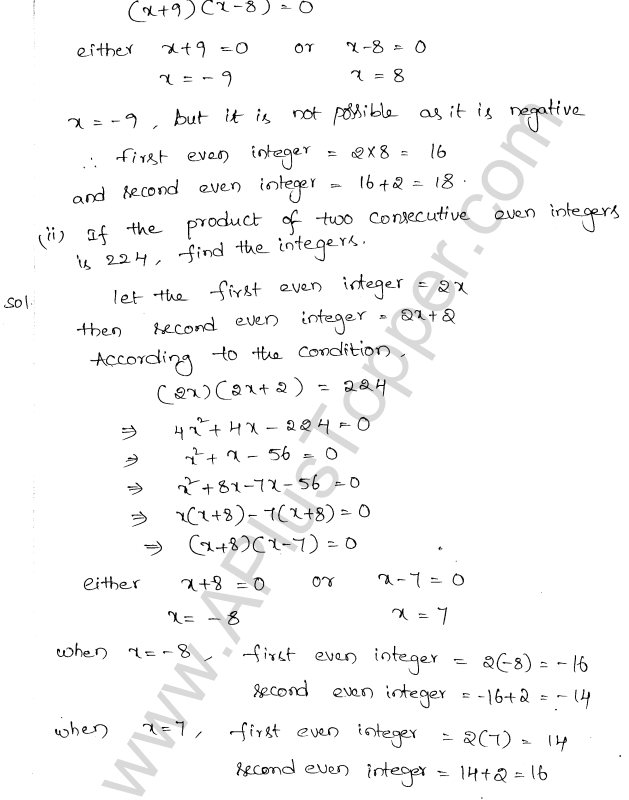 (x+9)(x-8)=0
either x+9=0 or x-8=0
x=-9 x=8
x=-9, but it is not possible as it is negative
∴ first even integer = 2×8 = 16
and second even integer = 16+2 = 18.
(ii) If the product of two consecutive even integers
is 224, find the integers.
Sol. let the first even integer = 2x
then second even integer = 2x+2
According to the condition,
(2x)(2x+2) = 224
⇒ 4x²+4x-224=0
⇒ x²+x-56=0
⇒ x²+8x-7x-56=0
⇒ x(x+8)-7(x+8)=0
⇒ (x+8)(x-7)=0
either x+8=0 or x-7=0
x=-8 x=7
when x=-8, first even integer = 2(-8)=-16
second even integer = -16+2 = -14
when x=7, first even integer = 2(7) = 14
second even integer = 14+2=16
www.APlusTopper.com